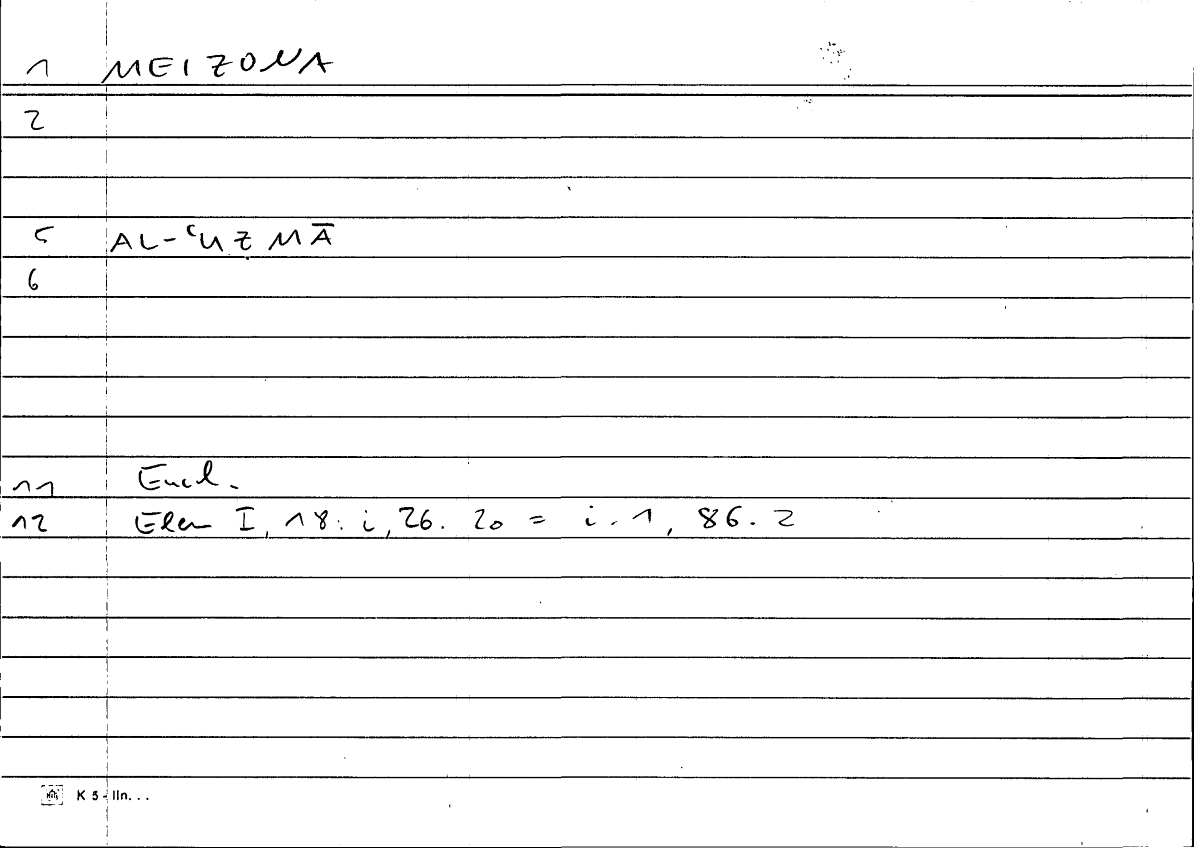 1 MEIZONA
2
5 AL-ʿUẒMĀ
6
11 Eucl.
12 Elem I, 18: i, 26. 20 = i. 1, 86. 2
K 5 - lin. . .